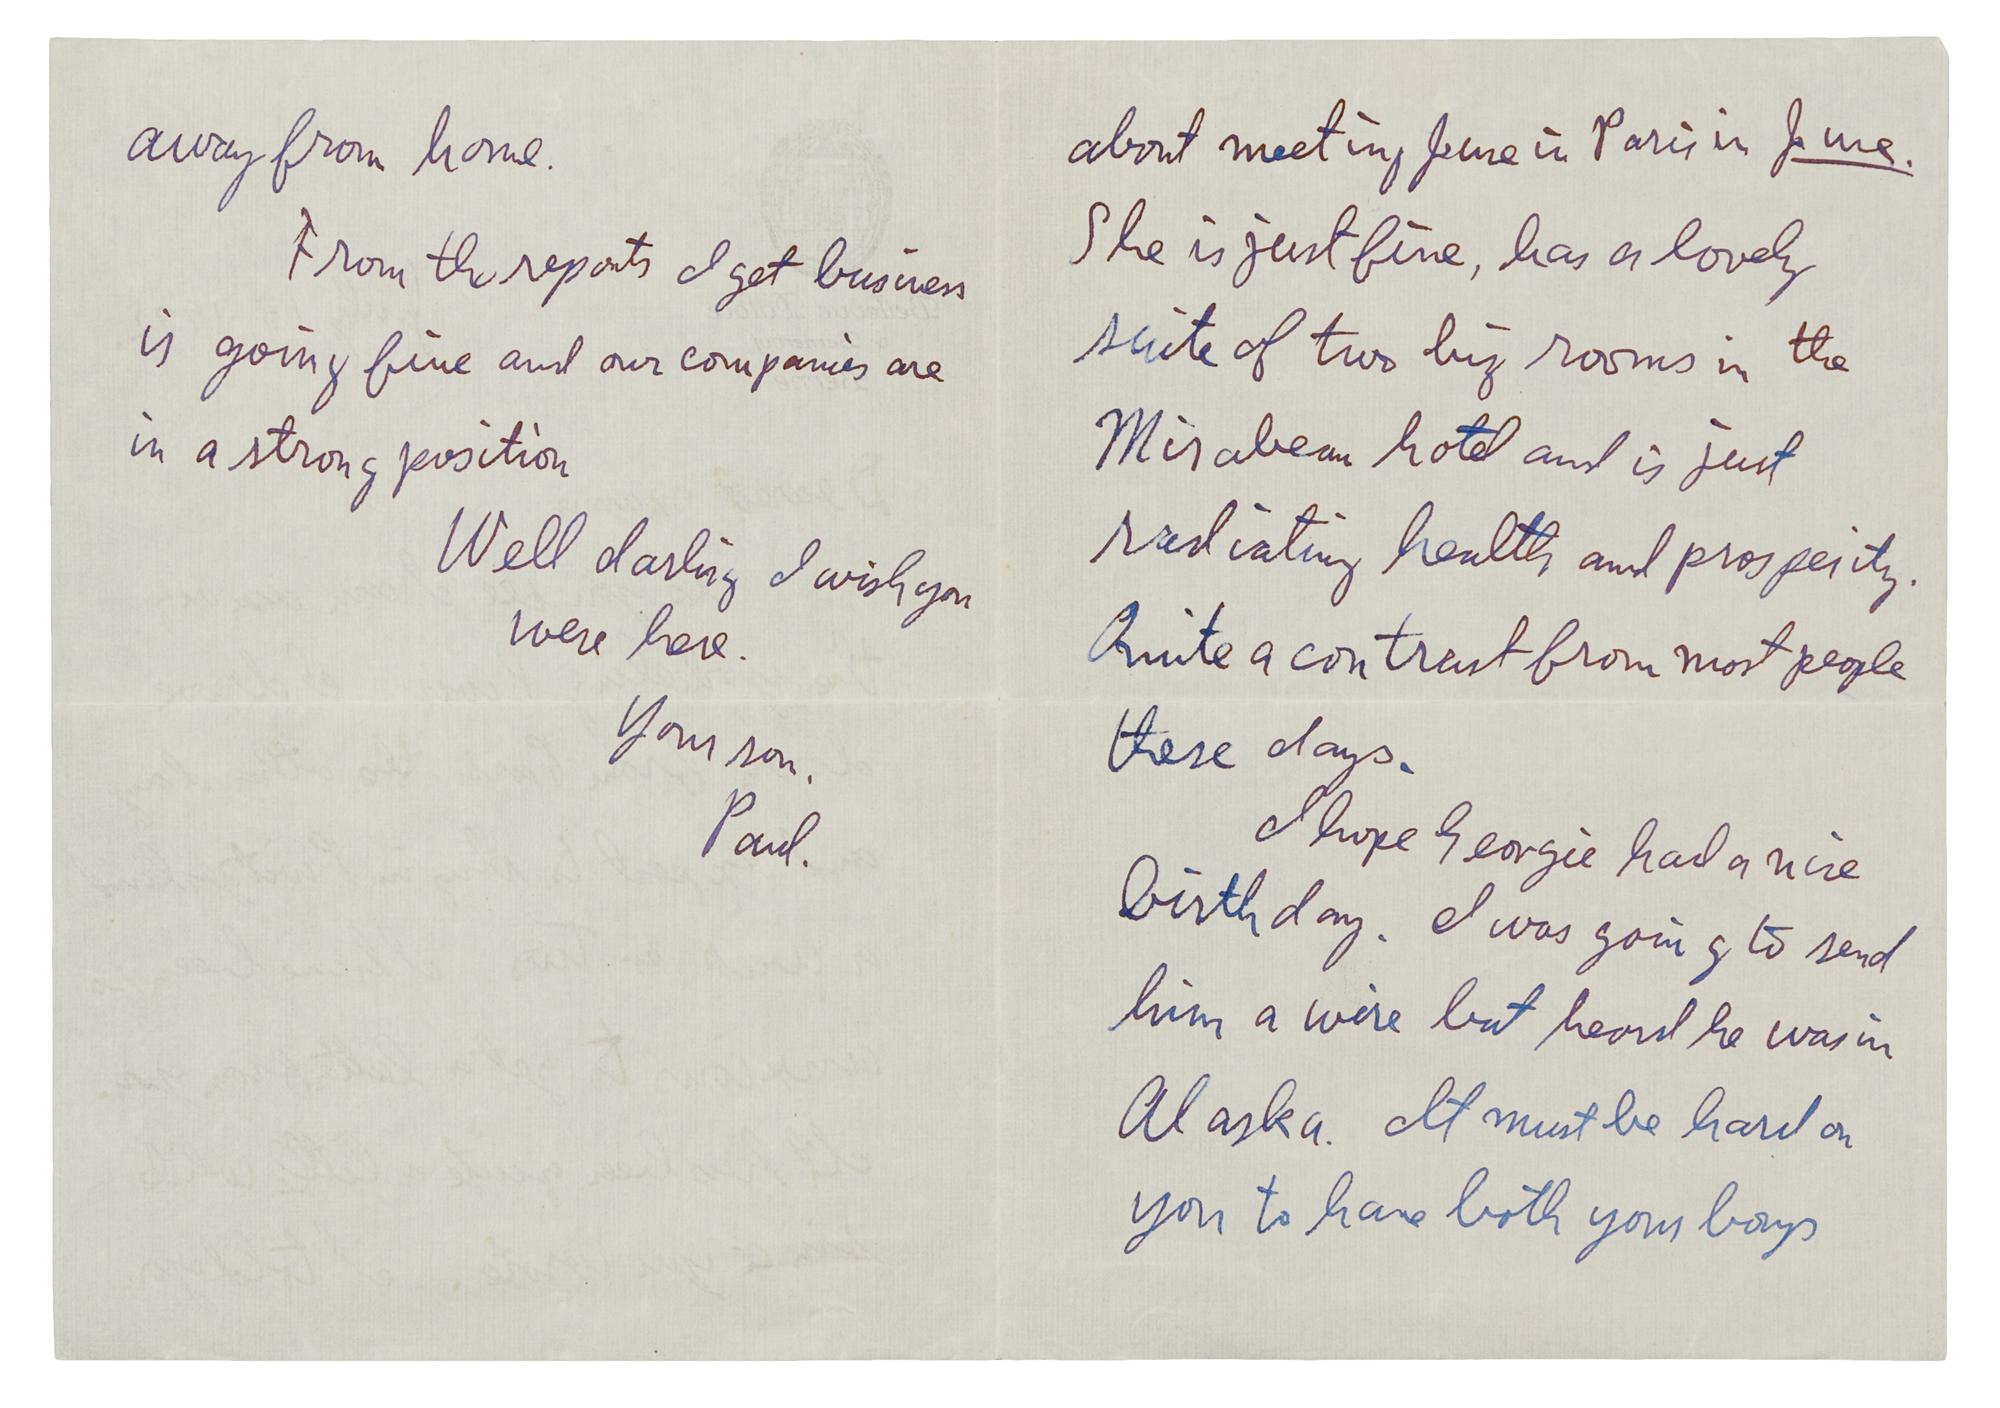 about meeting June in Paris in June.
She is just fine, has a lovely
suite of two big rooms in the
Mirabeau hotel and is just
radiating health and prosperity.
Quite a contrast from most people
these days.
I hope Georgie had a nice
birthday. I was going to send
him a wire but heard he was in
Alaska. It must be hard on
you to have both your boys
away from home.
From the reports I get business
is going fine and our companies are
in a strong position
Well darling I wish you
were here.
Your son.
Paul.